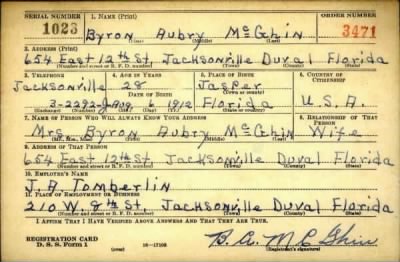 SERIAL NUMBER 1. NAME (Print) ORDER NUMBER
1023 Byron Aubry McGhin 3471
(First) (Middle) (Last)
2. ADDRESS (Print)
654 East 12th St, Jacksonville Duval Florida
(Number and street or R. F. D. number) (Town) (County) (State)
3. TELEPHONE 4. AGE IN YEARS 5. PLACE OF BIRTH 6. COUNTRY OF CITIZENSHIP
Jacksonville 28 Jasper
DATE OF BIRTH
3-2292-J Aug 6 1912 Florida U.S.A.
7. NAME OF PERSON WHO WILL ALWAYS KNOW YOUR ADDRESS 8. RELATIONSHIP OF THAT PERSON
Mrs. Byron Aubry McGhin Wife
9. ADDRESS OF THAT PERSON
654 East 12th St, Jacksonville Duval Florida
(Number and street or R. F. D. number) (Town) (County) (State)
10. EMPLOYER'S NAME
J. A. Tomberlin
11. PLACE OF EMPLOYMENT OR BUSINESS
210 W. 8th St, Jacksonville Duval Florida
(Number and street or R. F. D. number) (Town) (County) (State)
I AFFIRM THAT I HAVE VERIFIED ABOVE ANSWERS AND THAT THEY ARE TRUE.
REGISTRATION CARD
D. S. S. Form 1 (over) 16-17105 B. A. McGhin
(Registrant's signature)